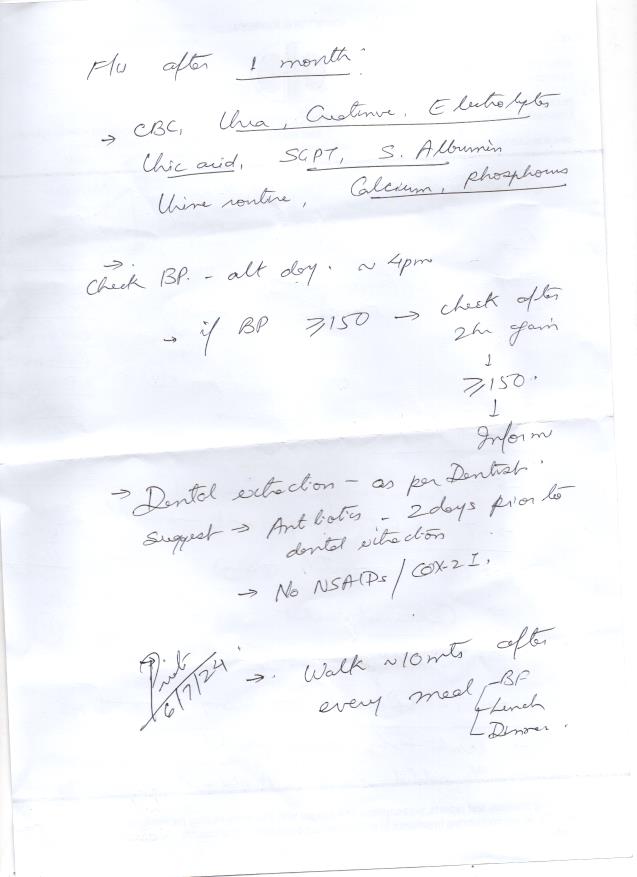 F/u after 1 month.
→ CBC, Urea, Creatinine, Electrolytes
Uric acid, SGPT, S. Albumin
Urine routine, Calcium, phosphorus
→ Check BP. - alt day. ~ 4pm
→ if BP ≥150 → check after
2hr again
↓
≥150.
↓
Inform
→ Dental extraction - as per Dentist.
Suggest → Antibiotics - 2 days prior to
dental extraction
→ No NSAIDs / COX-2 I.
→ Walk ~10 mts after
every meal - BF
- Lunch
- Dinner.
6/7/24